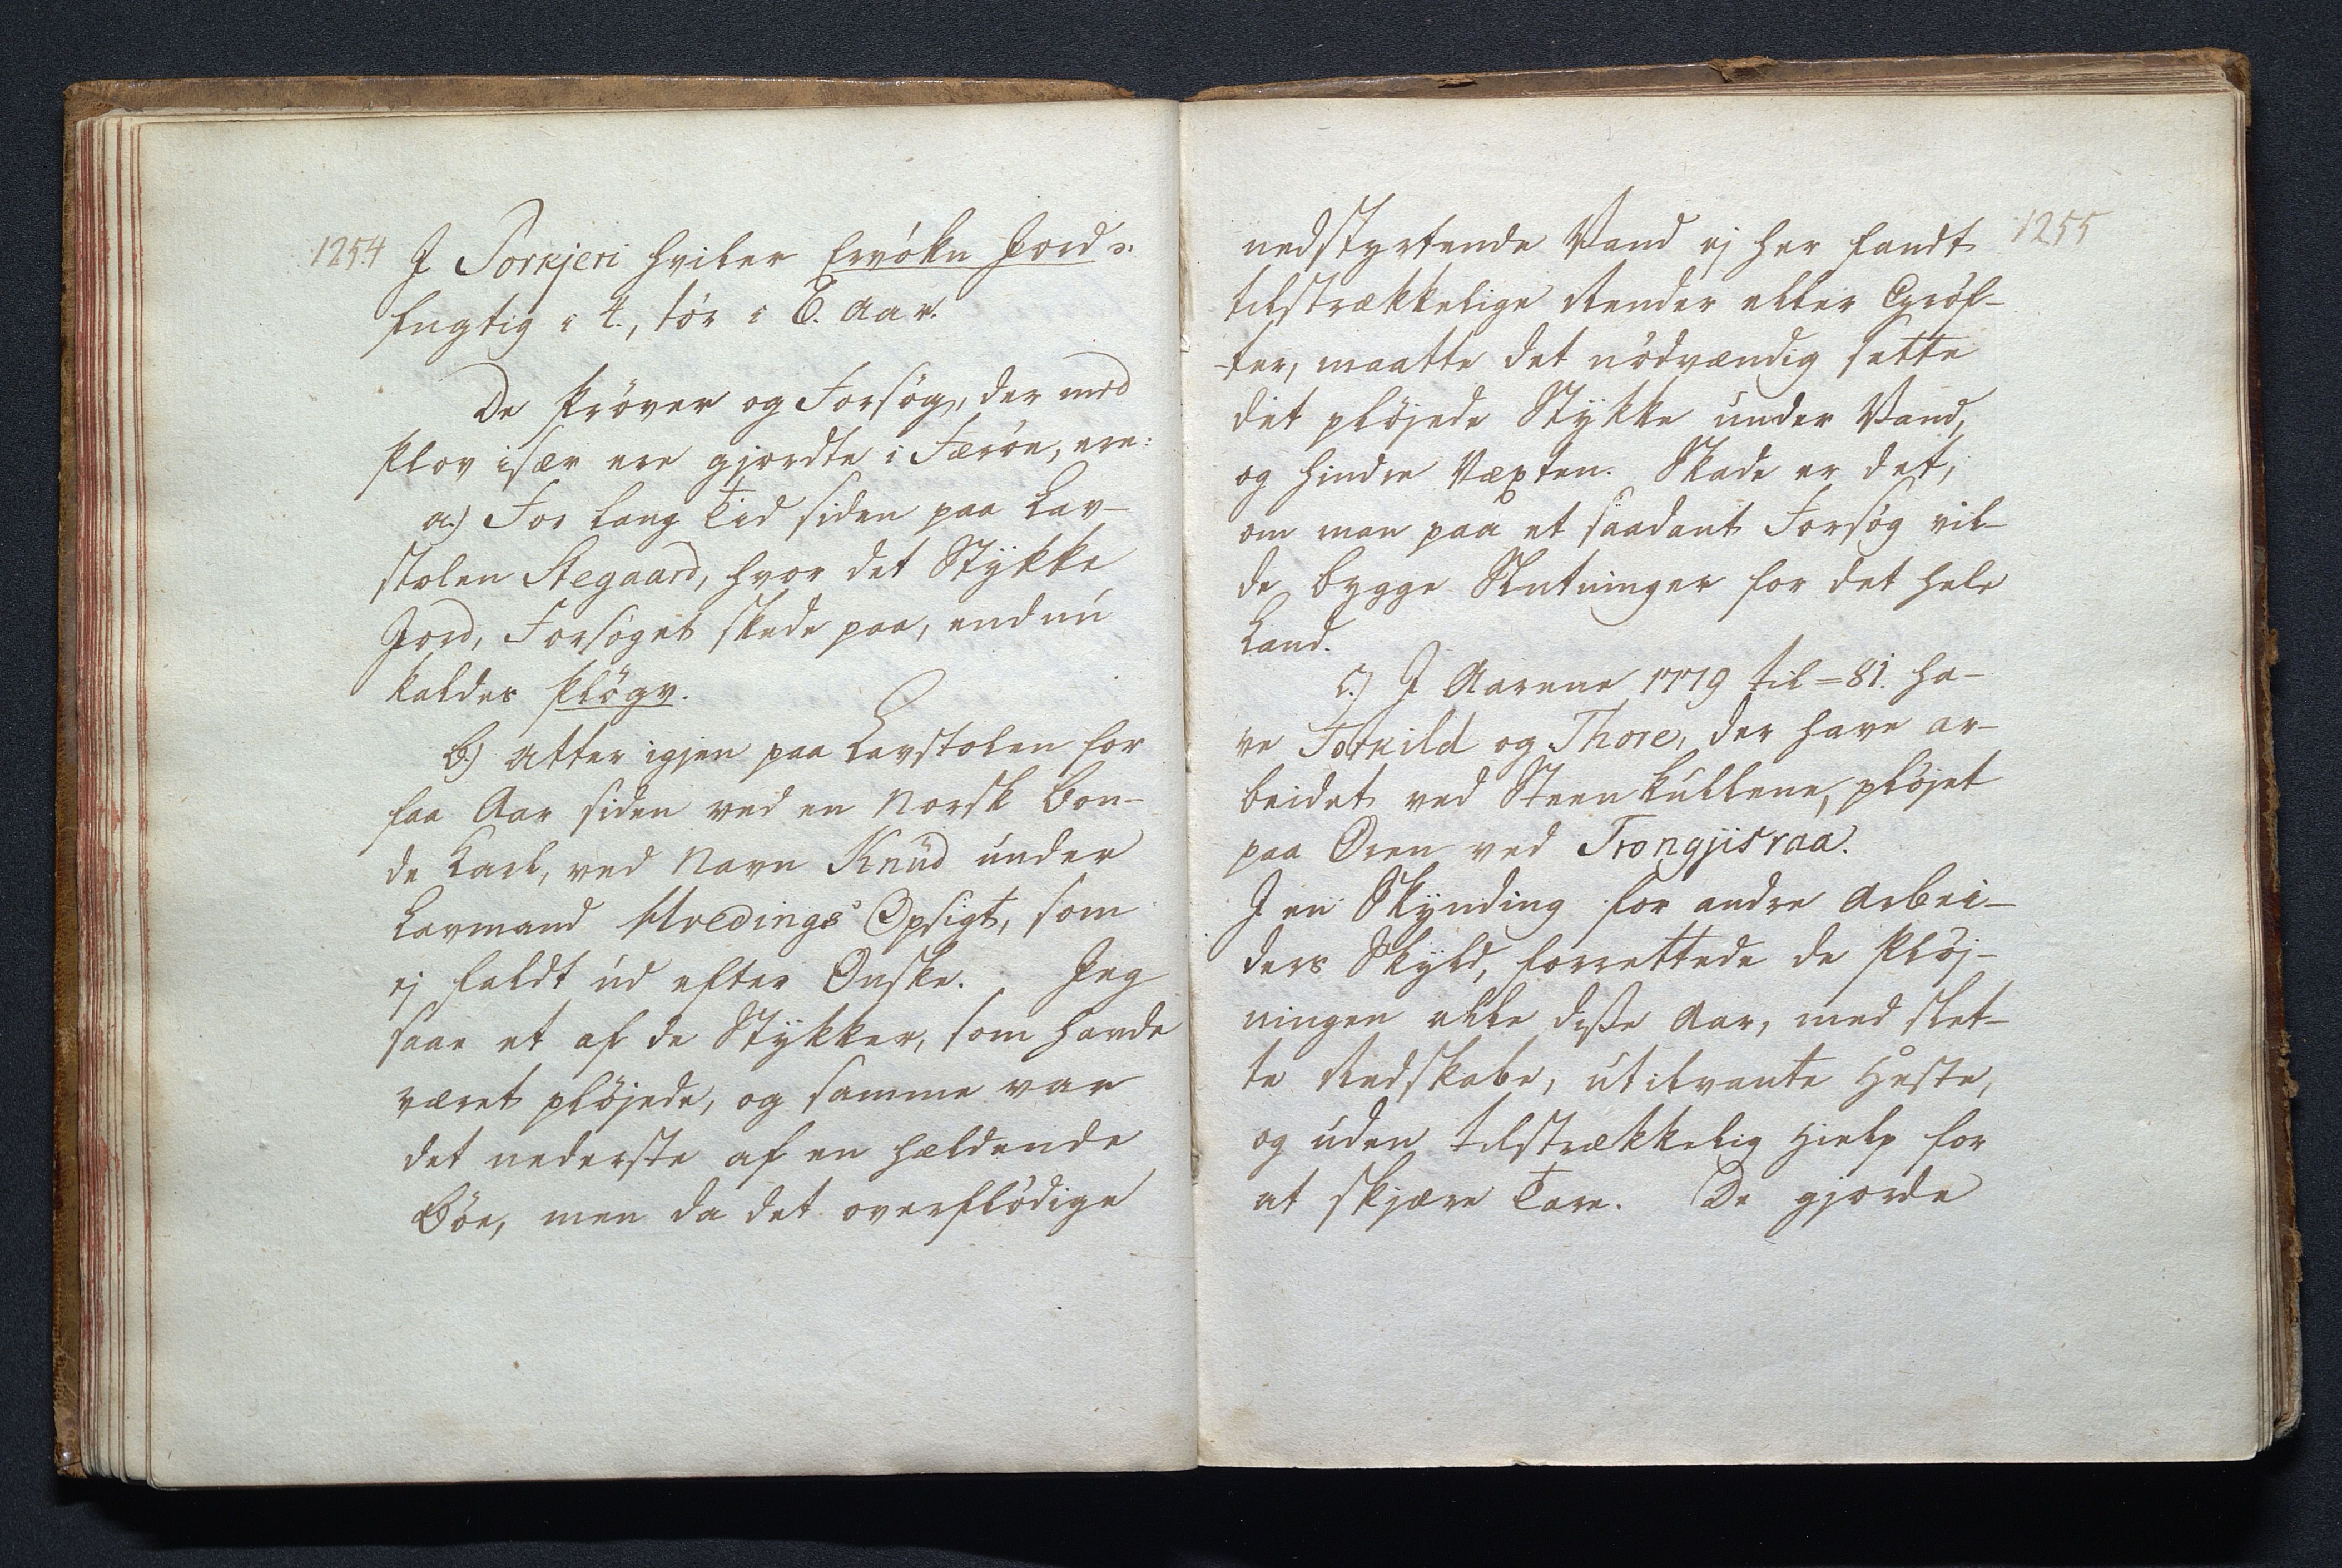 1254
I Porkjeri hviler Ervókn Jord ɔ:
fugtig i 4., tör i 6. Aar.
De Pröver og Forsög, der med
Plov især ere gjordte i Færöe, ere:
a.) For lang Tid siden paa Lav-
stolen Stegaard, hvor det Stÿkke
Jord, Forsöget skede paa, endnu
kaldes Plögv.
b.) Atter igjen paa Lavstolen for
faa Aar siden ved en Norsk Bon-
de Karl, ved Navn Knud under
Lavmand Hvedings Opsigt, som
ej faldt ud efter Önske. Jeg
saae et af de Stÿkker, som havde
været plöjede, og samme var
det nederste af en hældende
Böe, men da det overflödige
1255
nedstyrtende Vand ej her fandt
tilstrækkelige Render eller Gröf-
ter, maatte det nödvændig sette
det plöjede Stÿkke under Vand,
og hindre Væxten. Skade er det,
om man paa et saadant Forsög vil-
de bygge Slutninger for det hele
Land.
c.) I Aarene 1779 til =81. ha-
ve Torkild og Thore, der have ar-
beidet ved Steenkullene, plöjet
paa Ören ved Trongjisvaa.
I en Skÿnding for andre Arbei-
ders Skÿld, forrettede de Plöj-
ningen alle disse Aar, med slet-
te Redskabe, utilvante Heste,
og uden tilstrækkelig Hielp for
at skjære Tare. De gjorde